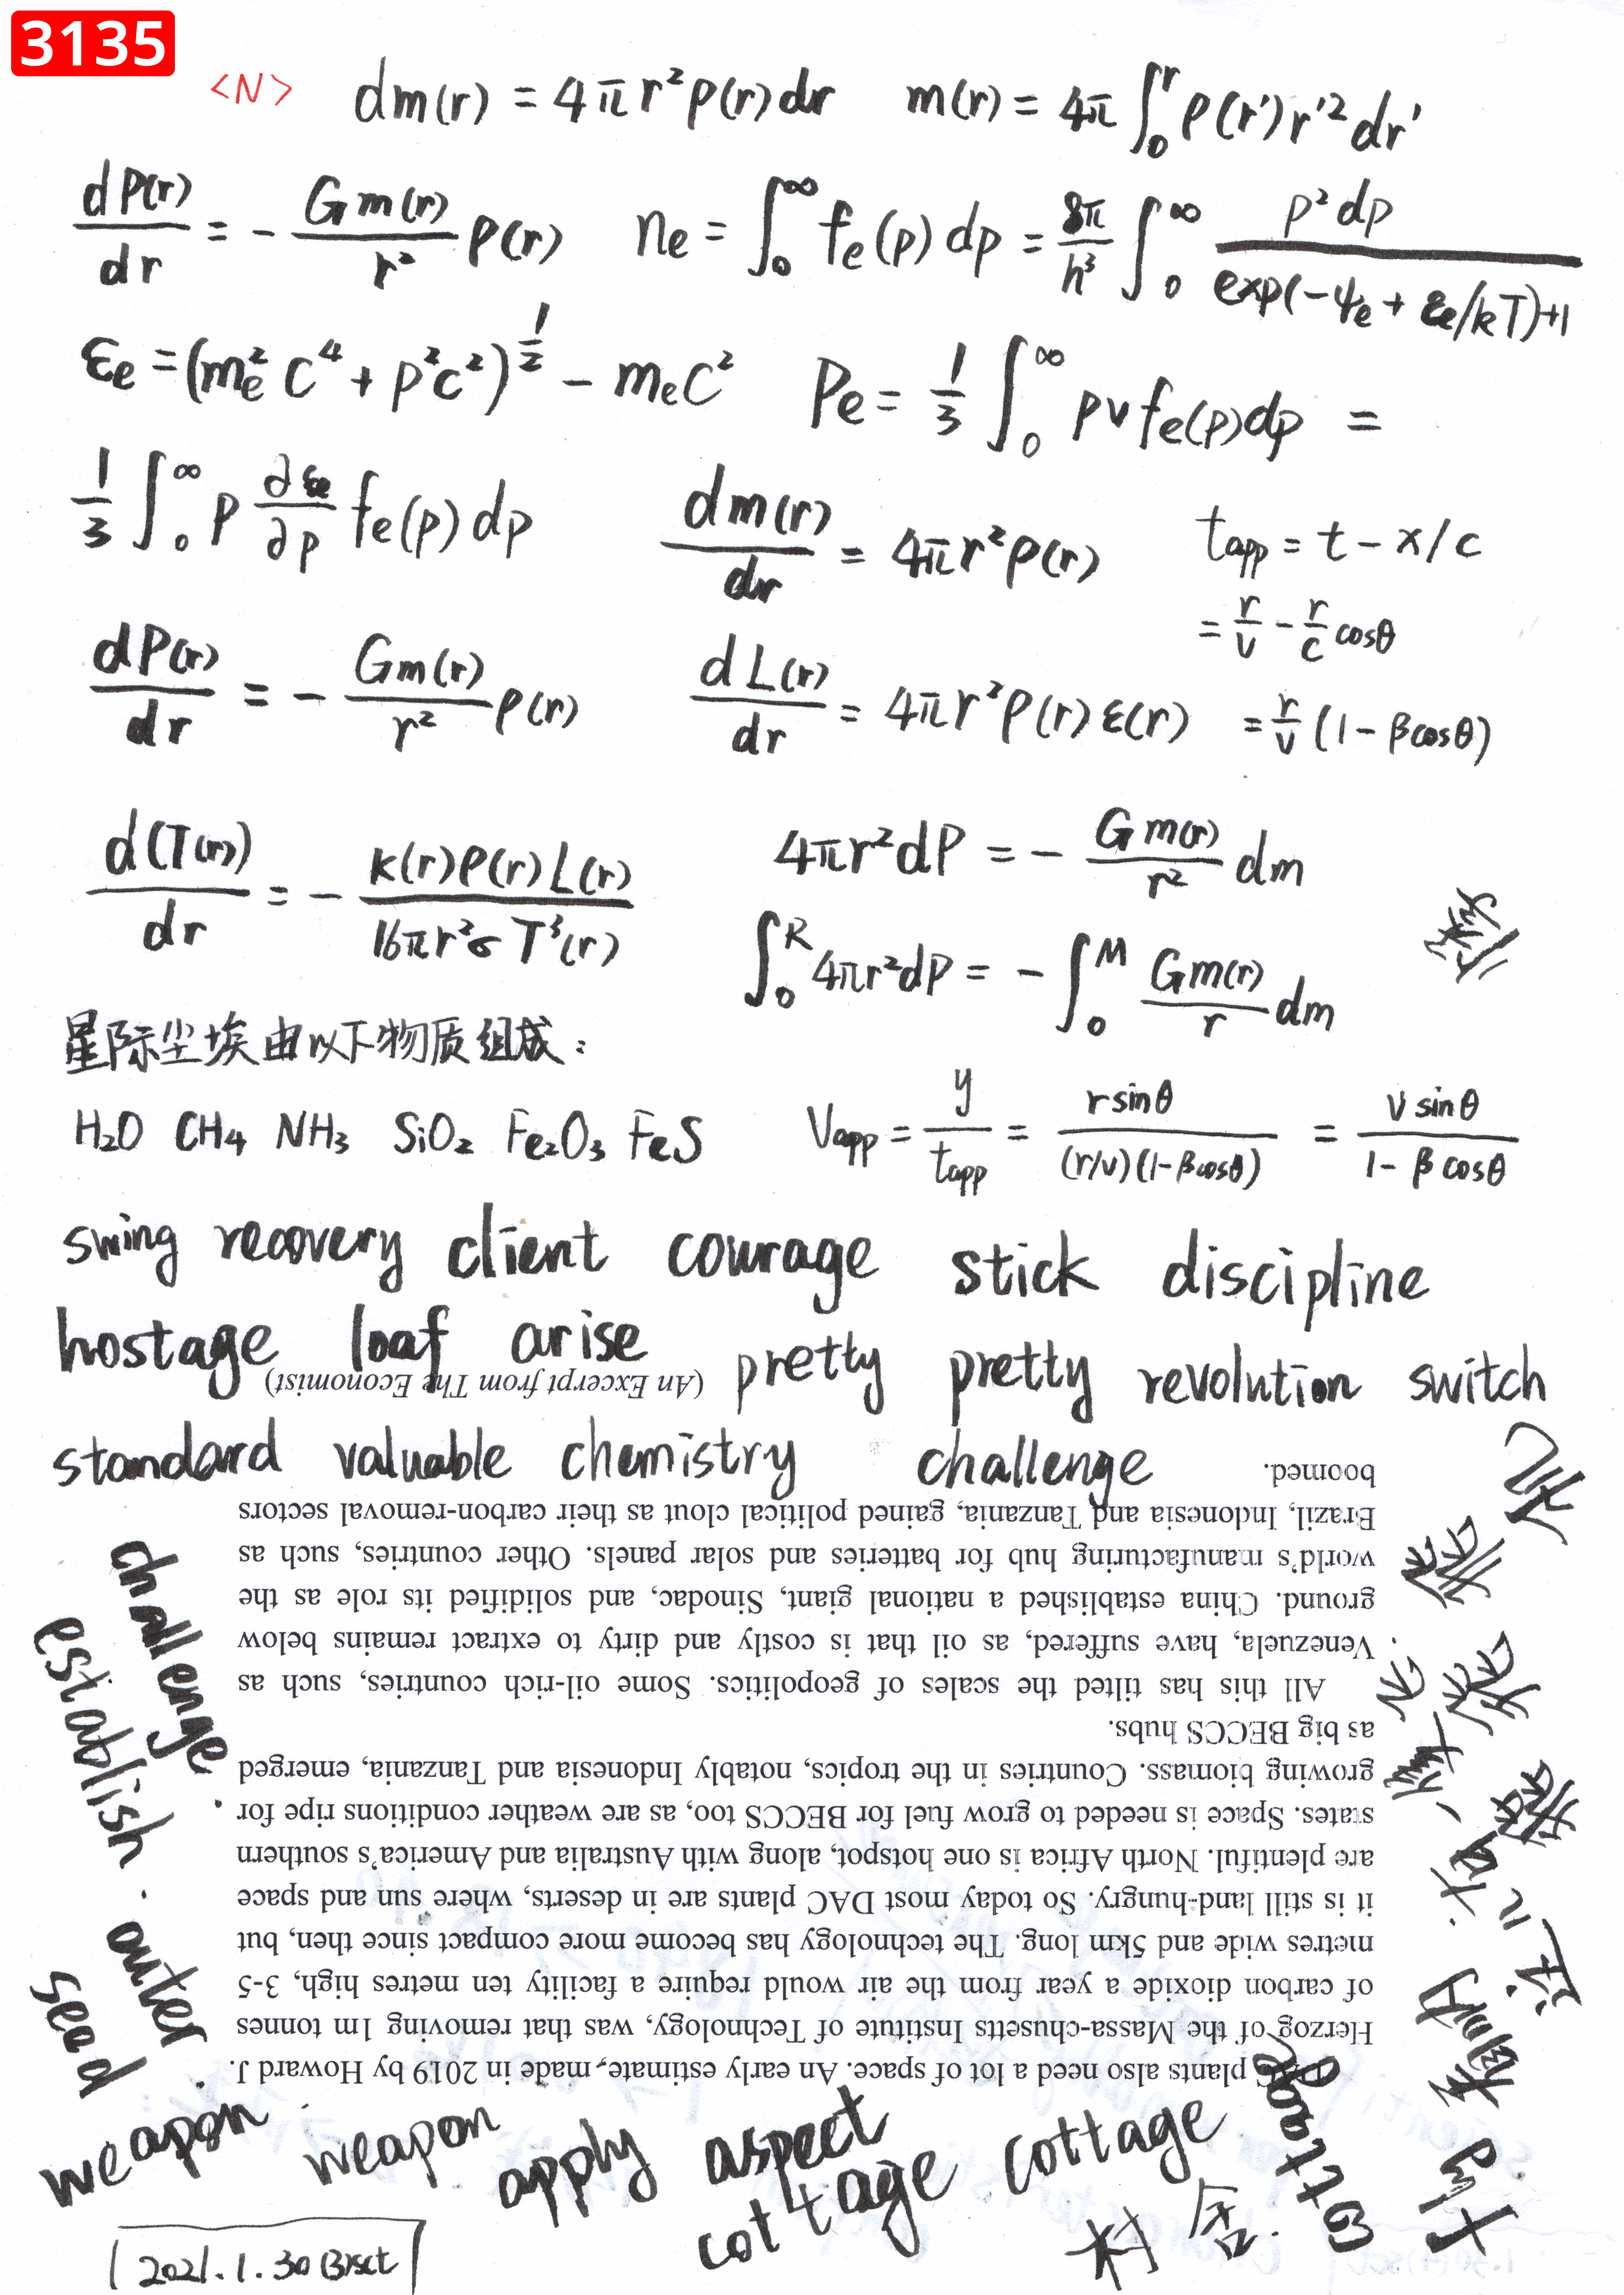 3135
<N> dm(r) = 4πr²ρ(r)dr m(r) = 4π∫₀ʳρ(r')r'²dr'
dP(r)/dr = - Gm(r)/r² ρ(r) nₑ = ∫₀^∞ fₑ(p)dp = 8π/h³ ∫₀^∞ p²dp/exp(-ψₑ + εₑ/kT)+1
εₑ = (mₑ²c⁴ + p²c²)^½ - mₑc² Pₑ = 1/3 ∫₀^∞ pvfₑ(p)dp =
1/3 ∫₀^∞ p ∂εₑ/∂p fₑ(p)dp dm(r)/dr = 4πr²ρ(r) t_app = t - x/c
= r/v - r/c cosθ
dP(r)/dr = - Gm(r)/r² ρ(r) dL(r)/dr = 4πr²ρ(r)ε(r) = r/v (1-βcosθ)
d(T(r))/dr = - κ(r)ρ(r)L(r)/16πr²σT³(r) 4πr²dP = - Gm(r)/r² dm
∫₀ᴿ 4πr²dP = - ∫₀ᴹ Gm(r)/r dm
星际尘埃由以下物质组成:
H₂O CH₄ NH₃ SiO₂ Fe₂O₃ FeS V_app = y/t_app = rsinθ/(r/v)(1-βcosθ) = vsinθ/1-βcosθ
swing recovery client courage stick discipline
hostage loaf arise pretty pretty revolution switch
standard valuable chemistry challenge
challenge
establish
outer
seed
weapon weapon apply aspect
cottage cottage cottage
村舍
2021.1.30(3)sct
DAC plants also need a lot of space. An early estimate, made in 2019 by Howard J.
Herzog of the Massa-chusetts Institute of Technology, was that removing 1m tonnes
of carbon dioxide a year from the air would require a facility ten metres high, 3-5
metres wide and 5km long. The technology has become more compact since then, but
it is still land-hungry. So today most DAC plants are in deserts, where sun and space
are plentiful. North Africa is one hotspot, along with Australia and America's southern
states. Space is needed to grow fuel for BECCS too, as are weather conditions ripe for
growing biomass. Countries in the tropics, notably Indonesia and Tanzania, emerged
as big BECCS hubs.
All this has tilted the scales of geopolitics. Some oil-rich countries, such as
Venezuela, have suffered, as oil that is costly and dirty to extract remains below
ground. China established a national giant, Sinodac, and solidified its role as the
world's manufacturing hub for batteries and solar panels. Other countries, such as
Brazil, Indonesia and Tanzania, gained political clout as their carbon-removal sectors
boomed.
(An Excerpt from The Economist)